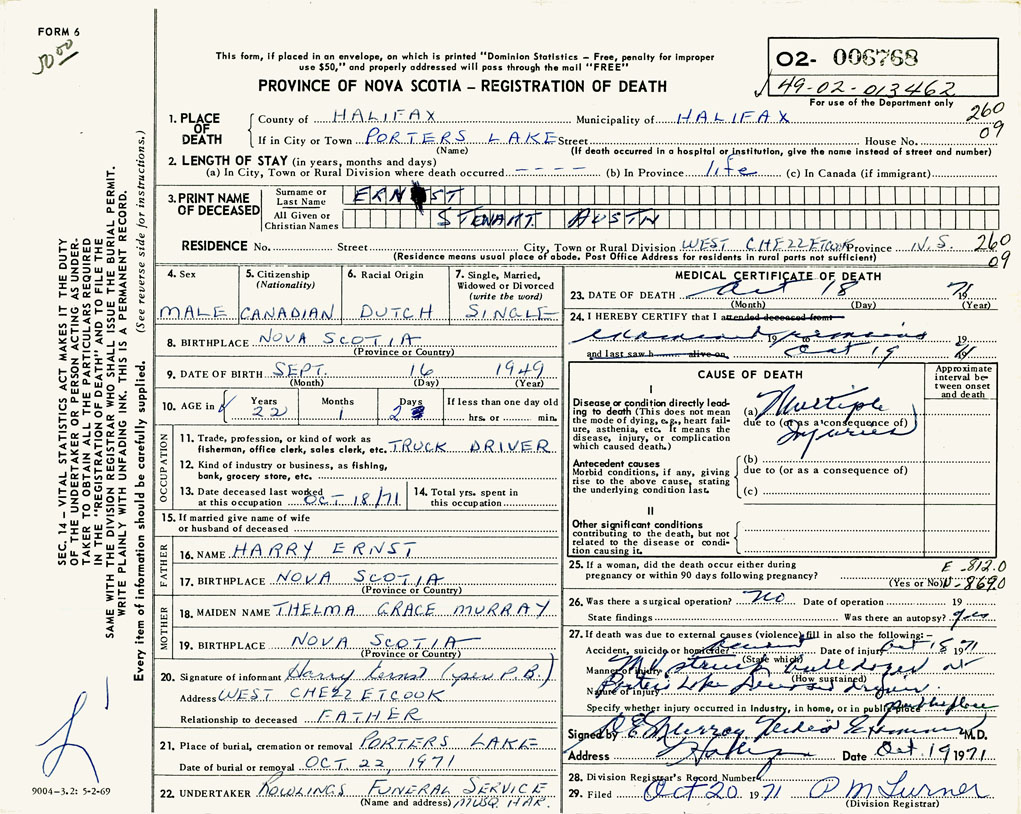 FORM 6
50.00
This form, if placed in an envelope, on which is printed "Dominion Statistics – Free, penalty for improper
use $50," and properly addressed will pass through the mail "FREE"
PROVINCE OF NOVA SCOTIA – REGISTRATION OF DEATH
02- 006768
49-02-013462
For use of the Department only
260
09
1. PLACE OF DEATH
County of HALIFAX Municipality of HALIFAX
If in City or Town PORTERS LAKE Street House No.
(Name) (If death occurred in a hospital or institution, give the name instead of street and number)
2. LENGTH OF STAY (in years, months and days)
(a) In City, Town or Rural Division where death occurred ---- (b) In Province life (c) In Canada (if immigrant)
3. PRINT NAME OF DECEASED
Surname or Last Name ERNST
All Given or Christian Names STEWART AUSTN
RESIDENCE No. Street City, Town or Rural Division WEST CHEZZETCOOK Province N.S. 260
(Residence means usual place of abode. Post Office Address for residents in rural parts not sufficient) 09
4. Sex
MALE
5. Citizenship
(Nationality)
CANADIAN
6. Racial Origin
DUTCH
7. Single, Married,
Widowed or Divorced
(write the word)
SINGLE
8. BIRTHPLACE NOVA SCOTIA
(Province or Country)
9. DATE OF BIRTH SEPT. 16 1949
(Month) (Day) (Year)
10. AGE in Years Months Days If less than one day old
22 1 2 hrs. or min.
OCCUPATION
11. Trade, profession, or kind of work as
fisherman, office clerk, sales clerk, etc. TRUCK DRIVER
12. Kind of industry or business, as fishing,
bank, grocery store, etc.
13. Date deceased last worked
at this occupation OCT 18/71
14. Total yrs. spent in
this occupation
15. If married give name of wife
or husband of deceased
FATHER
16. NAME HARRY ERNST
17. BIRTHPLACE NOVA SCOTIA
(Province or Country)
MOTHER
18. MAIDEN NAME THELMA GRACE MURRAY
19. BIRTHPLACE NOVA SCOTIA
(Province or Country)
20. Signature of informant Harry Ernst (per P.B.)
Address WEST CHEZZETCOOK
Relationship to deceased FATHER
21. Place of burial, cremation or removal PORTERS LAKE
Date of burial or removal OCT 22, 1971
22. UNDERTAKER ROWLINGS FUNERAL SERVICE
(Name and address) MUSQ. HAR.
MEDICAL CERTIFICATE OF DEATH
23. DATE OF DEATH Oct 18 1971
(Month) (Day) (Year)
24. I HEREBY CERTIFY that I attended deceased from
examined remains 19 19
and last saw h alive on Oct 19 71
CAUSE OF DEATH
Approximate
interval be-
tween onset
and death
I
Disease or condition directly lead-
ing to death (This does not mean
the mode of dying, e.g., heart fail-
ure, asthenia, etc. It means the
disease, injury, or complication
which caused death.)
(a) Multiple
due to (or as a consequence of)
Injuries
Antecedent causes
Morbid conditions, if any, giving
rise to the above cause, stating
the underlying condition last.
(b)
due to (or as a consequence of)
(c)
II
Other significant conditions
contributing to the death, but not
related to the disease or condi-
tion causing it.
25. If a woman, did the death occur either during E-812.0
pregnancy or within 90 days following pregnancy?
(Yes or No) N-869.0
26. Was there a surgical operation? No Date of operation 19
State findings Was there an autopsy? yes
27. If death was due to external causes (violence) fill in also the following:–
Accident, suicide or homicide? Accident Date of injury Oct 18 1971
(State which)
Manner of injury M.V. struck bulldozer at
(How sustained)
Nature of injury Porters Lake Deceased driver
Specify whether injury occurred in Industry, in home, or in public place public place
Signed by D E Murray Medical Examiner M.D.
Address Halifax Date Oct. 19 1971
28. Division Registrar's Record Number
29. Filed Oct 20 1971 P M Turner
(Division Registrar)
SEC. 14 – VITAL STATISTICS ACT MAKES IT THE DUTY
OF THE UNDERTAKER OR PERSON ACTING AS UNDER-
TAKER TO OBTAIN ALL THE PARTICULARS REQUIRED
IN THE "REGISTRATION OF DEATH" AND TO FILE THE
SAME WITH THE DIVISION REGISTRAR WHO SHALL ISSUE THE BURIAL PERMIT.
WRITE PLAINLY WITH UNFADING INK. THIS IS A PERMANENT RECORD.
Every item of information should be carefully supplied. (See reverse side for instructions.)
9004-3.2: 5-2-69